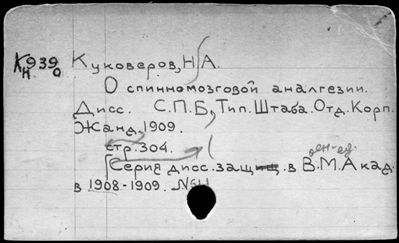 К939 Куковеров, Н.А.
О спинномозговой аналгезии.
Дисс. С.П.Б, Тип. Штаба. Отд. Корп.
Жанд. 1909.
стр. 304.
Серия дисс. защищ. в В.М.Акад.
в 1908-1909. №61